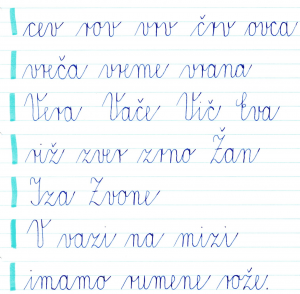 cev rov vrv črv ovca
vreča vreme vrana
Vera Vače Vič Eva
riž zver zrno Žan
Iza Zvone
V vazi na mizi
imamo rumene rože.